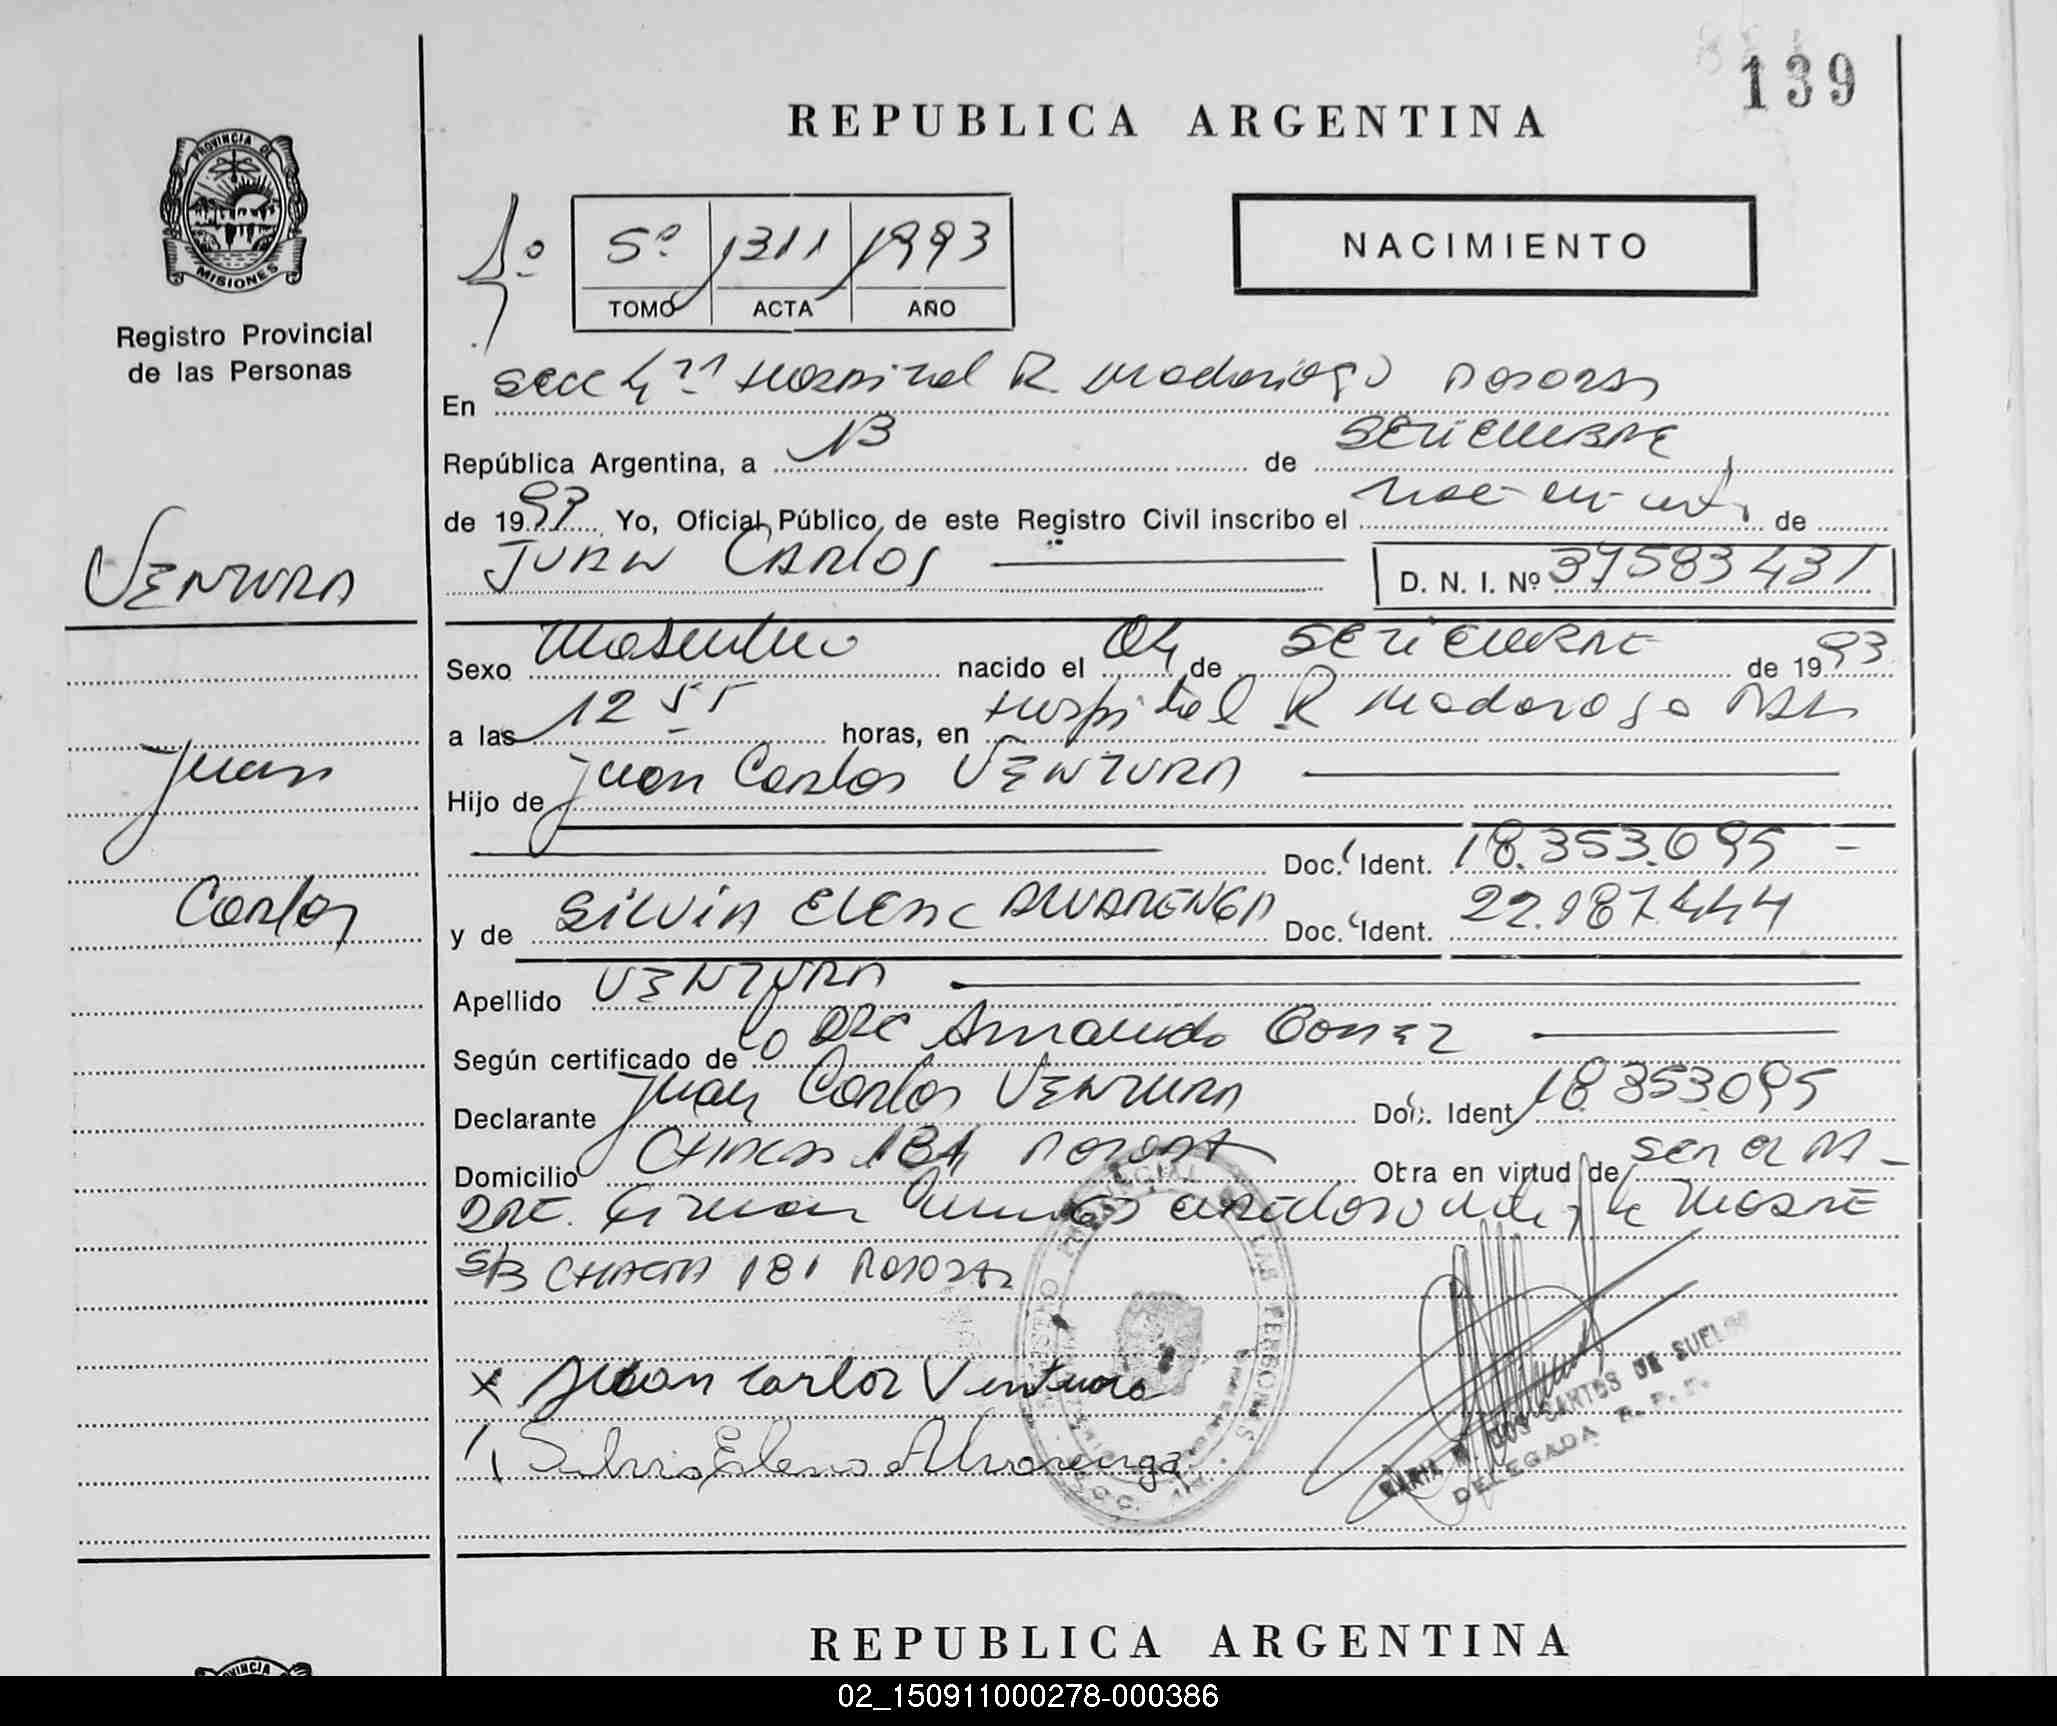 139
REPUBLICA ARGENTINA
PROVINCIA DE
MISIONES
Registro Provincial
de las Personas
5º 1311 1993
TOMO ACTA AÑO
NACIMIENTO
En Secc 4ª Hospital R Madariaga Posadas
República Argentina, a 13 de SETIEMBRE
de 1993 Yo, Oficial Público, de este Registro Civil inscribo el de
VENTURA
JUAN CARLOS D. N. I. Nº 37583431
Sexo Masculino nacido el 04 de SETIEMBRE de 1993
a las 12 55 horas, en Hospital R Madariaga
Juan
Hijo de Juan Carlos VENTURA
Doc. Ident. 18.353.095
Carlos
y de SILVIA ELENA ALVARENGA Doc. Ident. 22.187.444
Apellido VENTURA
Según certificado de Armando Gomez
Declarante Juan Carlos VENTURA Doc. Ident 18353095
Domicilio 181 Posadas Otra en virtud de ser el PA-
DRE. MADRE
181 Posadas
x Juan Carlos Ventura
Silvia Elena Alvarenga
DOS SANTOS DE
DELEGADA R. P. P.
REPUBLICA ARGENTINA
02_150911000278-000386